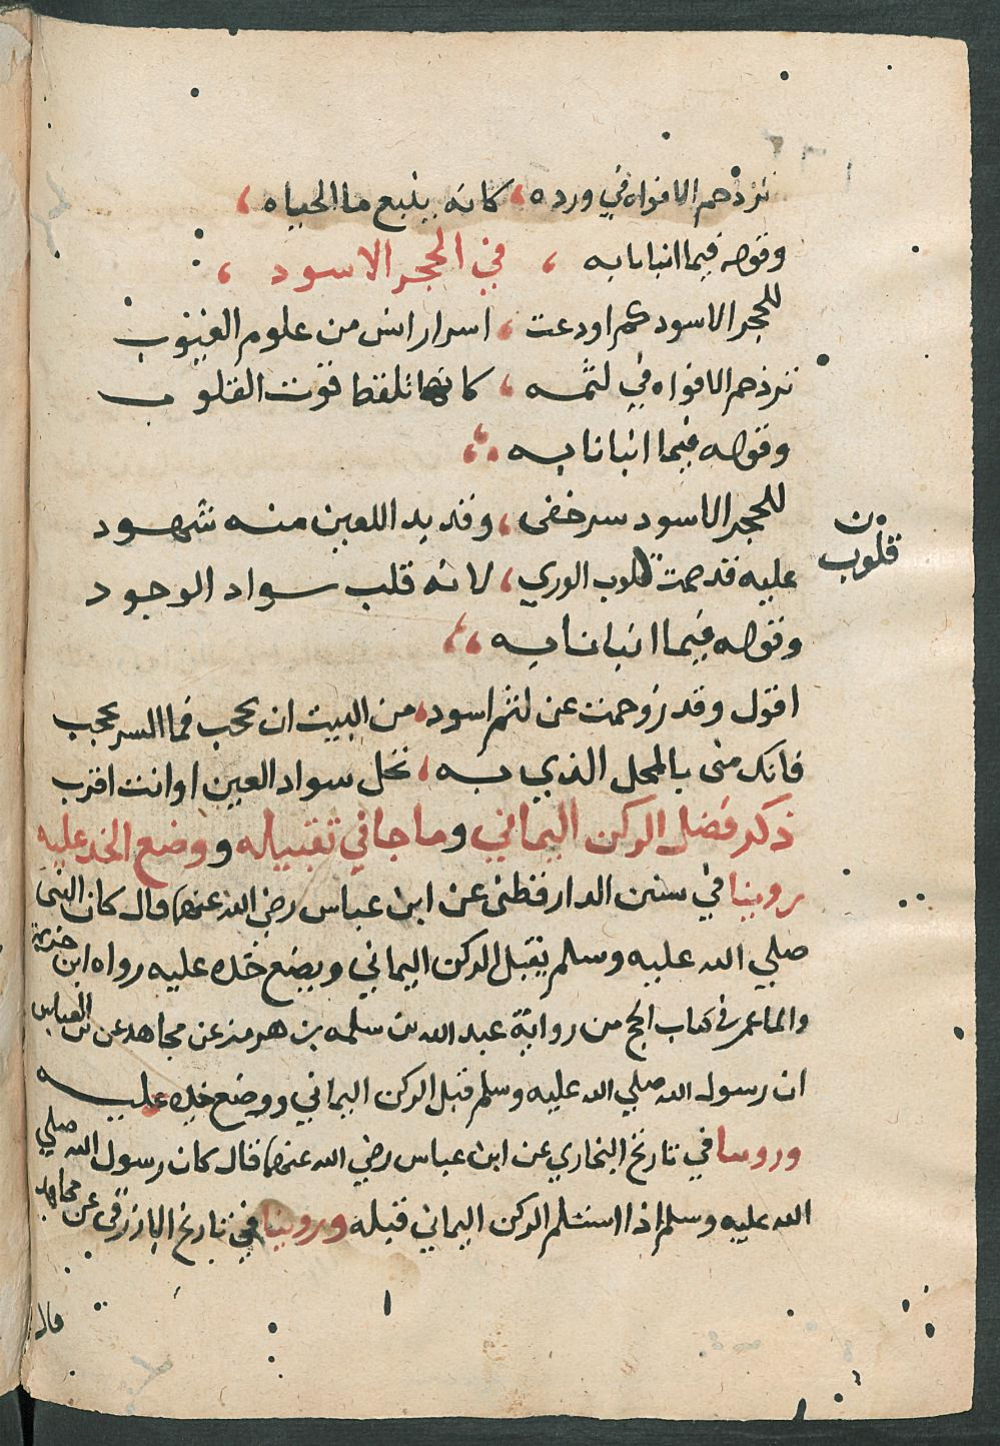 تزدحم الافواه في ورده ، كانه ينبع ما الحياه ،
وقوله فيما انبانا به ، في الحجر الاسود ،
للحجر الاسود كم اودعت ، اسرار انس من علوم الغيوب
تزدحم الافواه في لثمه ، كانها تلقط قوت القلوب
وقوله فيما انبانا به ،
للحجر الاسود سر خفى ، وقد بدا للعين منه شهود
عليه قد صمت قلوب الوري ، لانه قلب سواد الوجود
ن
قلوب
وقوله فيما انبانا به ،،
اقول وقد زوحمت عن لثم اسود ، من البيت ان يحجب فما السر يحجب
فانك منى بالمحل الذي به ، تحل سواد العين او انت اقرب
ذكر فضل الركن اليماني وما جا في تقبيله ووضع الخد عليه
روينا في سنن الدارقطنى عن ابن عباس رضي الله عنهما قال كان النبى
صلي الله عليه وسلم يقبل الركن اليماني ويضع خده عليه رواه ابن خزيمة
في كتاب الحج من رواية عبد الله بن سلمه بن هرمز عن مجاهد عن بن العباس
ان رسول الله صلي الله عليه وسلم قبل الركن اليماني ووضع خده عليه
وروينا في تاريخ البخاري عن ابن عباس رضي الله عنهما قال كان رسول الله صلي
الله عليه وسلم اذا استلم الركن اليماني قبله وروينا في تاريخ الازرقى عن مجاهد
قال